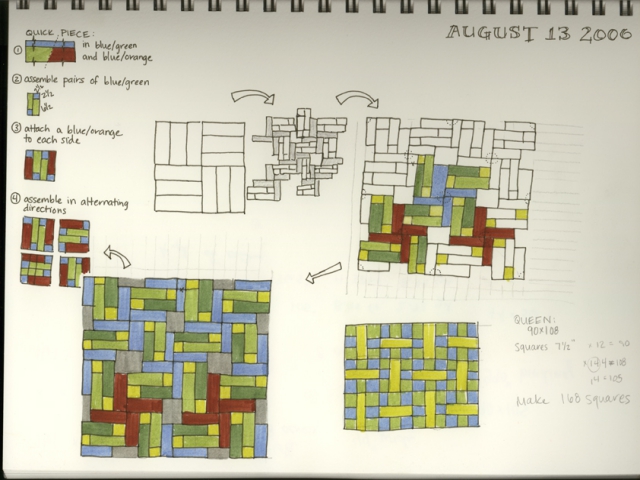 AUGUST 13 2006
QUICK PIECE:
① in blue/green
and blue/orange
② assemble pairs of blue/green
2½
6½
③ attach a blue/orange
to each side
④ assemble in alternating
directions
QUEEN:
90x108
Squares 7½" ÷12 = 90
14 = 105
Make 168 squares